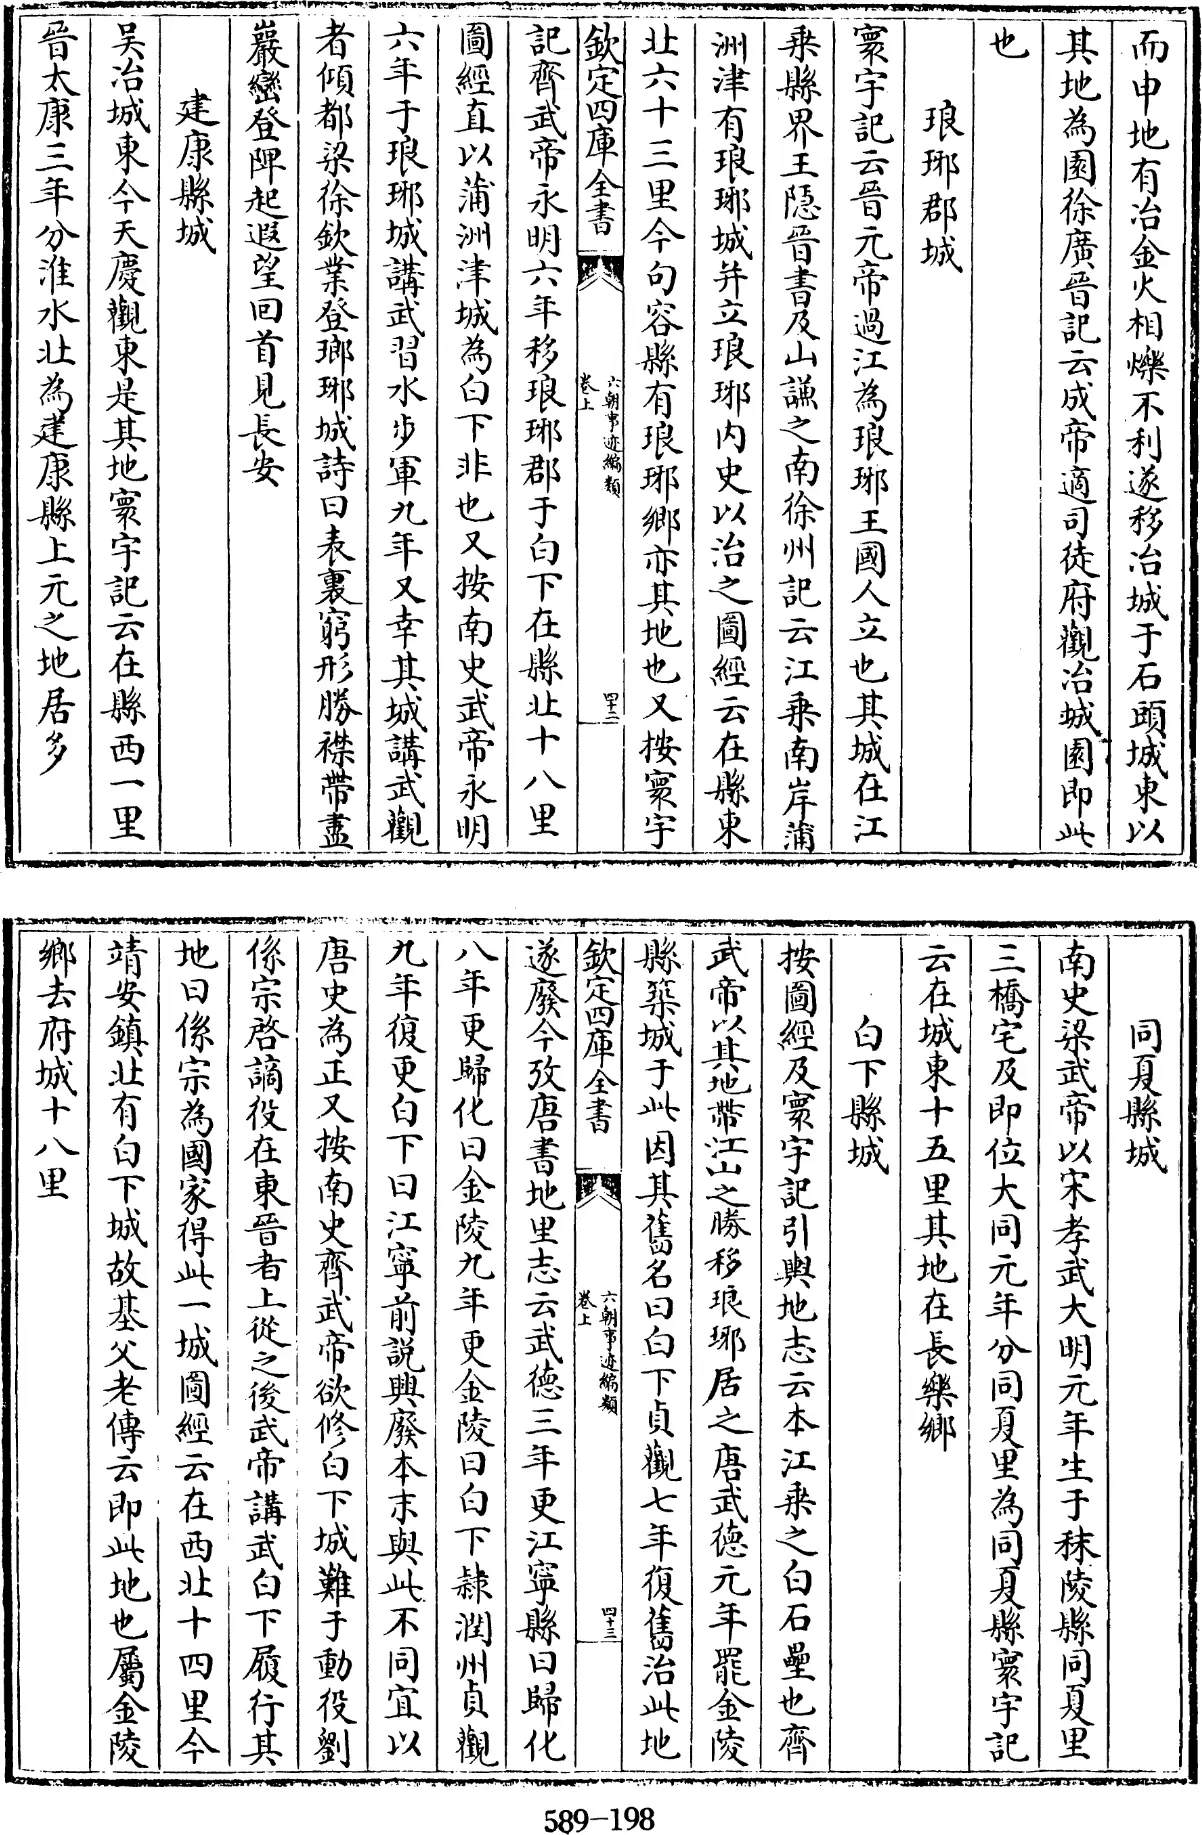 而申地有冶金火相爍不利遂移冶城于石頭城東以
其地為園徐廣晉記云成帝適司徒府觀冶城園即此
也
琅琊郡城
寰宇記云晉元帝過江為琅琊王國人立也其城在江
乘縣界王隱晉書及山謙之南徐州記云江乘南岸蒲
洲津有琅琊城并立琅琊内史以治之圖經云在縣東
北六十三里今句容縣有琅琊鄉亦其地也又按寰宇
欽定四庫全書
六朝事迹編類
卷上
四十二
記齊武帝永明六年移琅琊郡于白下在縣北十八里
圖經直以蒲洲津城為白下非也又按南史武帝永明
六年于琅琊城講武習水步軍九年又幸其城講武觀
者傾都梁徐欽業登瑯琊城詩曰表裏窮形勝襟帶盡
巖巒登陴起遐望回首見長安
建康縣城
吳冶城東今天慶觀東是其地寰宇記云在縣西一里
晉太康三年分淮水北為建康縣上元之地居多
同夏縣城
南史梁武帝以宋孝武大明元年生于秣陵縣同夏里
三橋宅及即位大同元年分同夏里為同夏縣寰宇記
云在城東十五里其地在長樂鄉
白下縣城
按圖經及寰宇記引輿地志云本江乘之白石壘也齊
武帝以其地帶江山之勝移琅琊居之唐武德元年罷金陵
縣築城于此因其舊名曰白下貞觀七年復舊治此地
欽定四庫全書
六朝事迹編類
卷上
四十三
遂廢今攷唐書地里志云武德三年更江寧縣曰歸化
八年更歸化曰金陵九年更金陵曰白下隷潤州貞觀
九年復更白下曰江寧前説興廢本末與此不同宜以
唐史為正又按南史齊武帝欲修白下城難于動役劉
係宗啓謫役在東晉者上從之後武帝講武白下履行其
地曰係宗為國家得此一城圖經云在西北十四里今
靖安鎮北有白下城故基父老傳云即此地也屬金陵
鄉去府城十八里
589-198